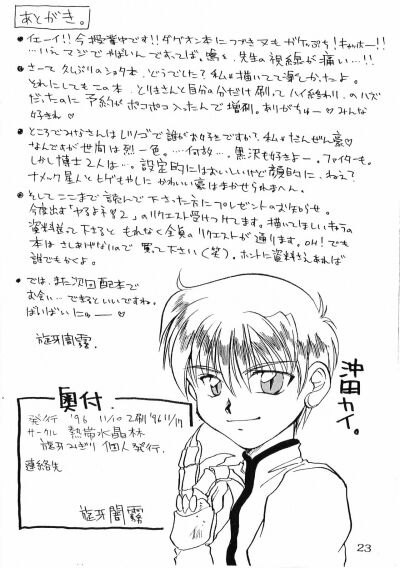 あとがき。
・イェーイ!!今授業中です!!ダグオン本につづき又もガケっぷち!キャホー!!
…いえマジでやばいんですってば。嗚呼、先生の視線が痛い…!!
・さーて久しぶりのショタ本、どうでした?私は描いてて楽しかったよ。
それにしてもこの本、とりまきんと自分の分だけ刷ってハイ終わり、のハズ
だったのに予約がポコポコ入ったんで増刷。ありがちゅー♡みんな
好きよ♡
・ところでみなさんはレツゴで誰がお好きですか?私はだんぜん豪♡
なんですが世間は烈一色。…何故…。黒沢も好きよー。ファイターも。
しかし博士2人は…。設定的にはおいしいけど顔的に…ねえて
ナメック星人とヒゲもやしに かわいい豪はまかせられまへん。
・そしてここまで読んで下さった方にプレゼントのお知らせ。
今度出す「やるよネ！2」のリクエスト受けつけてます。描いてほしいキャラの
資料送って下さると もれなく全員のリクエストが通ります。OH!でも
本は さしあげないので 買って下さい(笑)。ホントに資料さえあれば
誰でもかくよ。
・では、また次回配本で
お会い…できるといいですね。
ばいばいにゅー♡
旋牙闇霧.
沖田カイ。
奥付.
発行 '96 11/10 2刷 '96 11/17
サークル 熱帯水晶林
旋牙みぎり 個人発行.
連絡先
旋牙闇霧
23